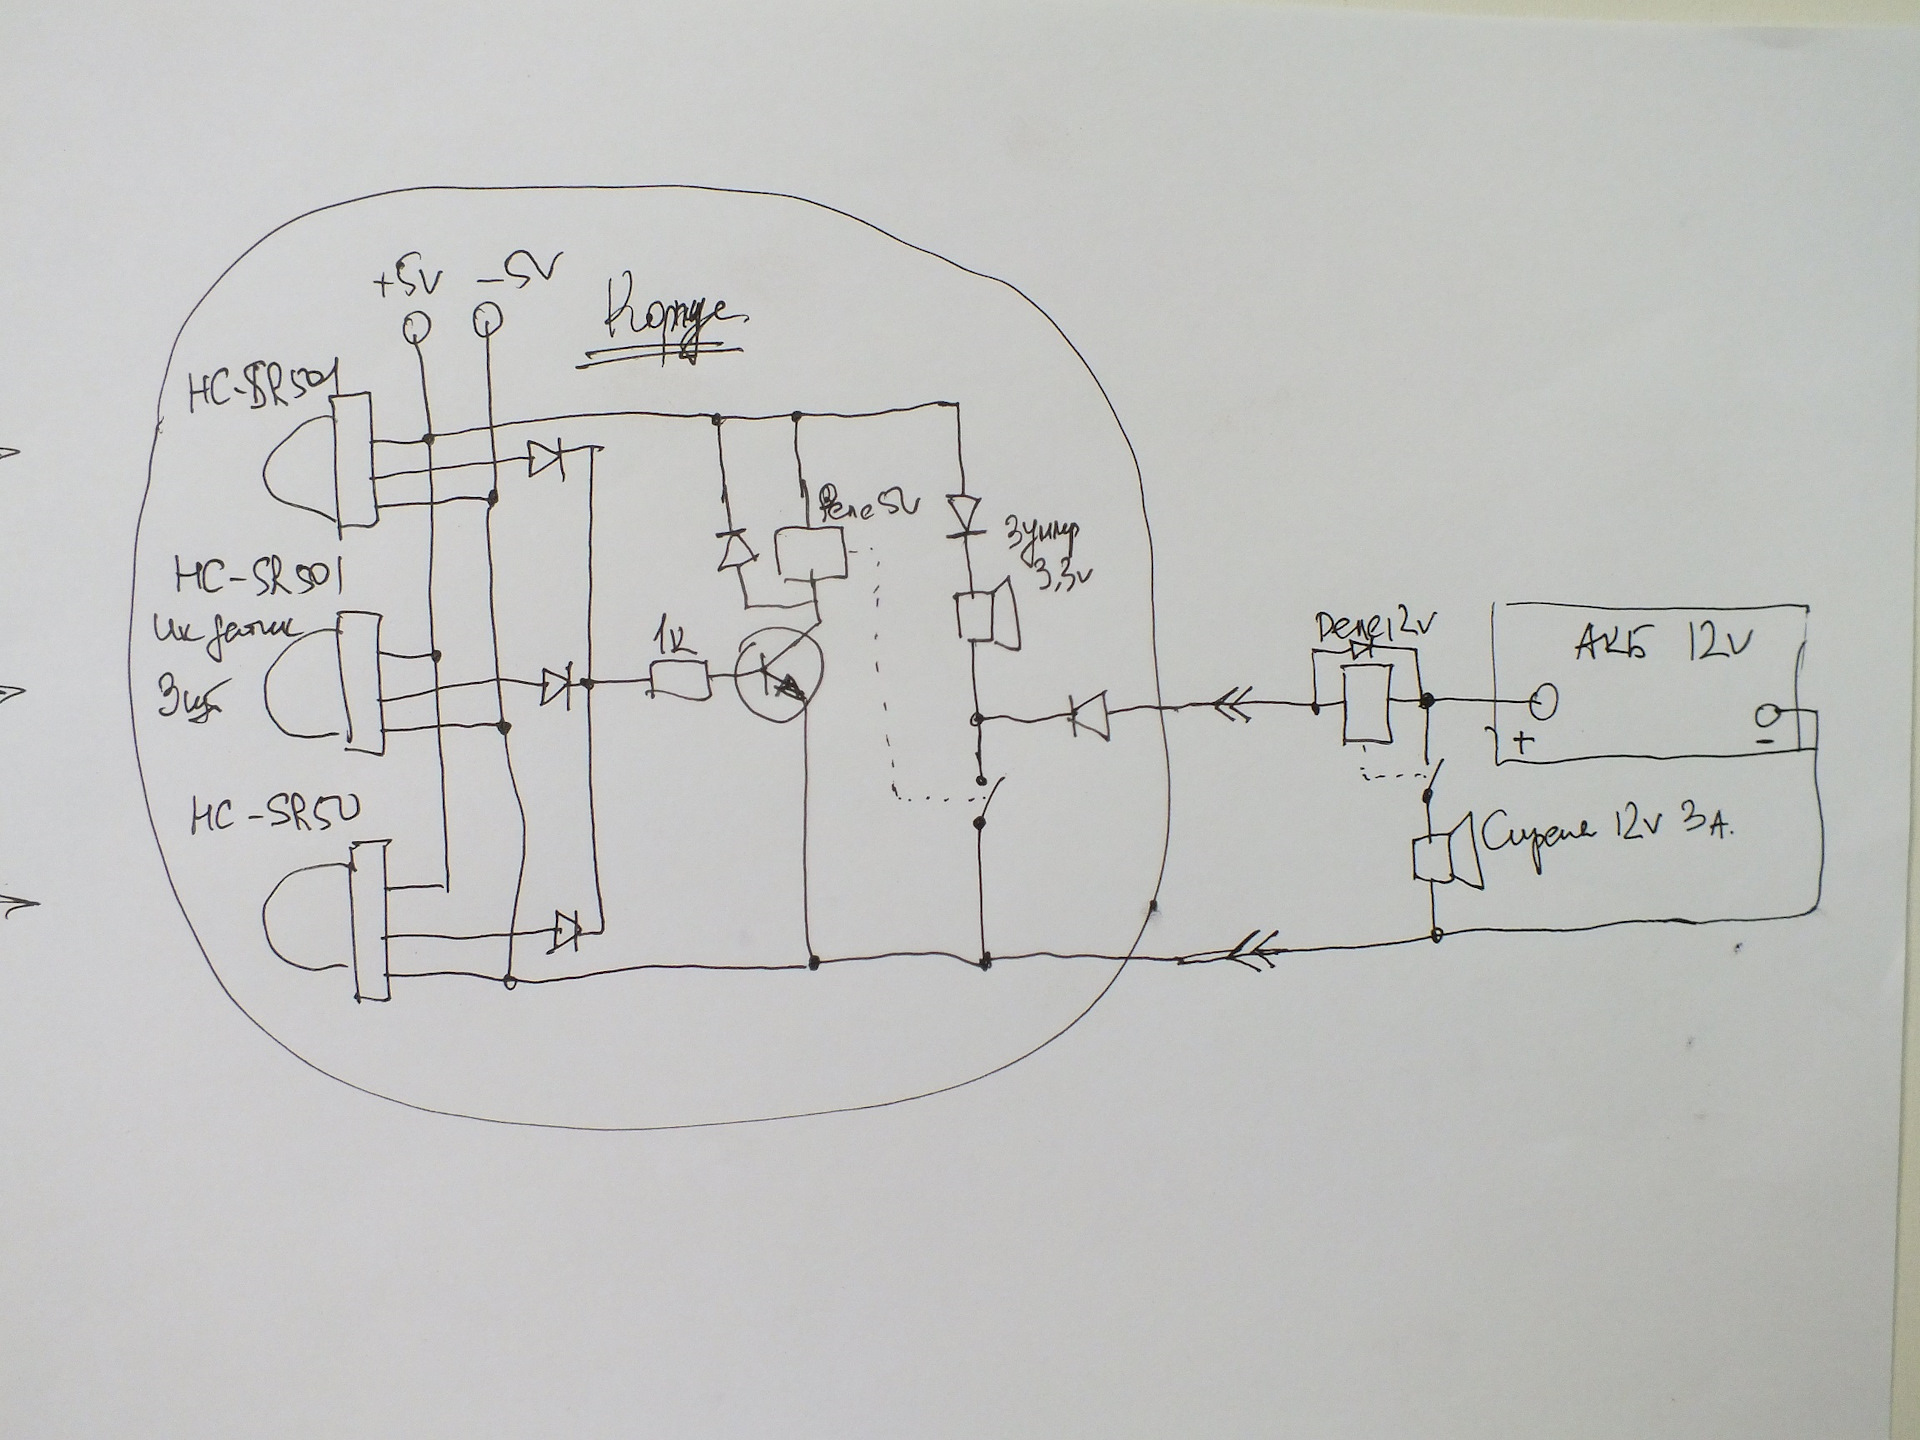 +5V -5V
Корпус
HC-SR501
Реле 5V
HC-SR501
Ик датчик
3 шт
Зуммер
3,3v
1К
Реле 12v
АКБ 12V
+
-
HC-SR50
Сирена 12v 3А.